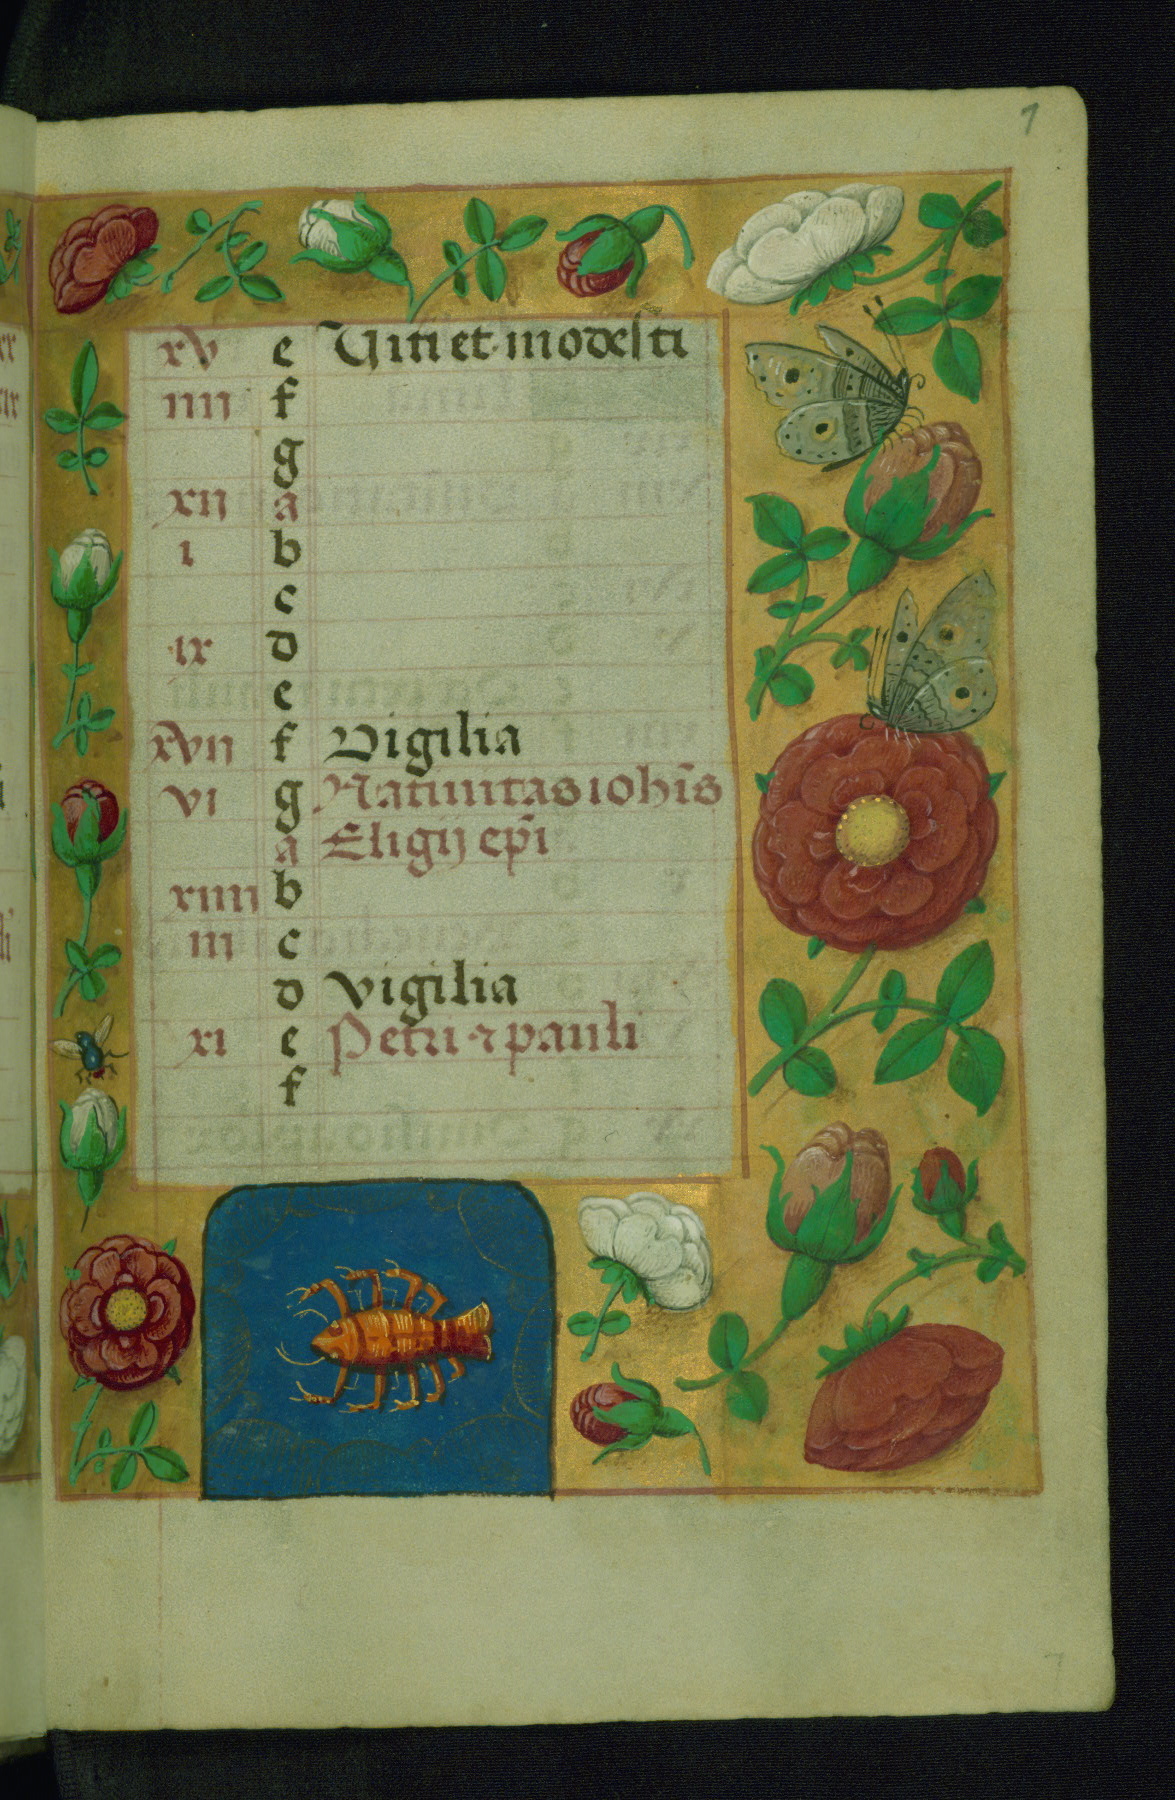 7
xv e Viti et modesti
iiii f
g
xii a
i b
c
ix d
e
xvii f Vigilia
vi g Natiuitas ioh̄is
a Eligij ep̄i
xiiii b
iii c
d Vigilia
xi e Petri ⁊ pauli
f